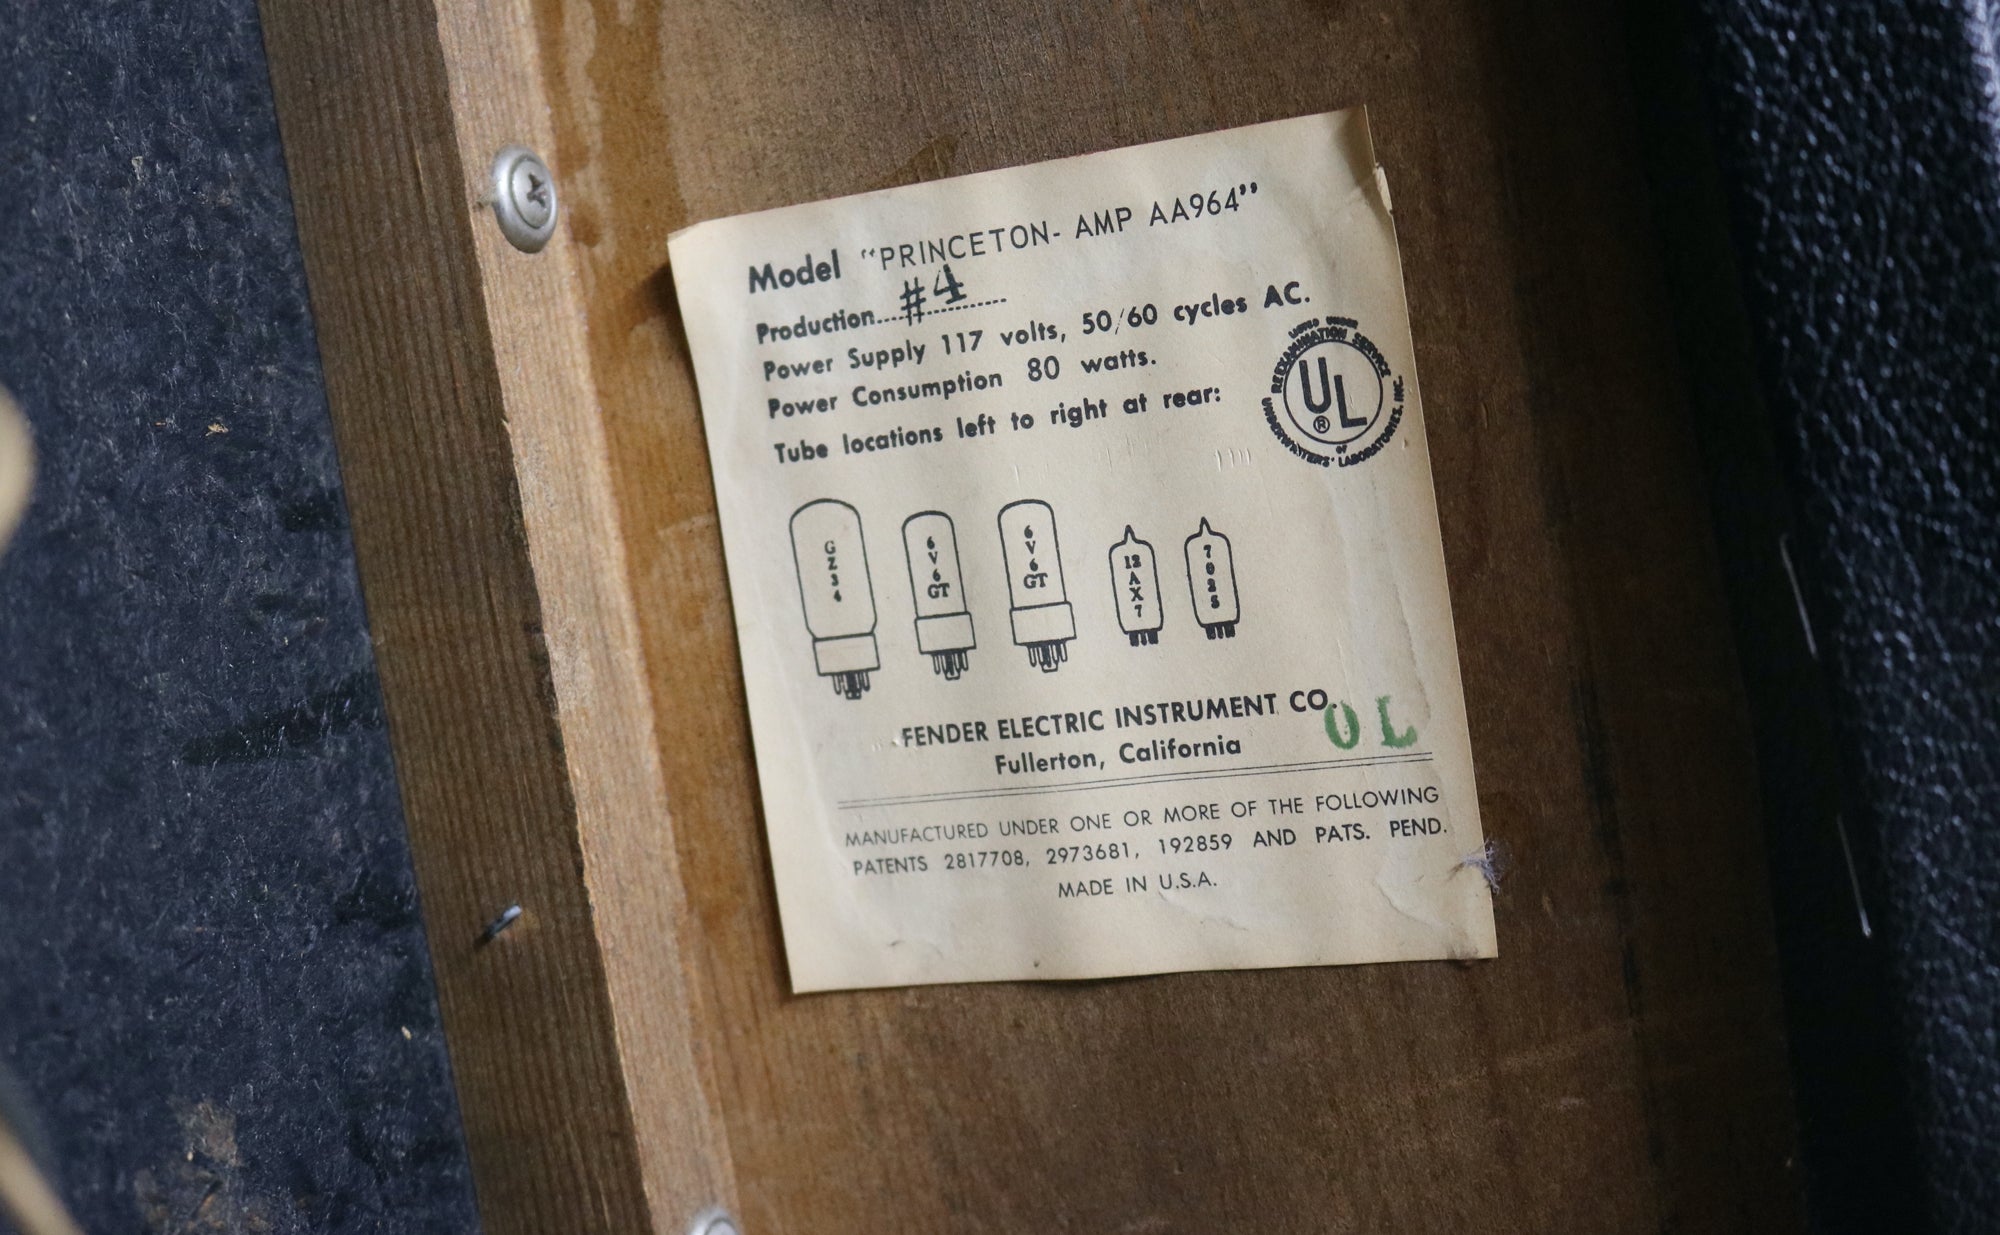 Model "PRINCETON- AMP AA964"
Production #4
Power Supply 117 volts, 50/60 cycles AC.
Power Consumption 80 watts.
Tube locations left to right at rear:
LISTED UNDER
REEXAMINATION SERVICE
UL
®
OF
UNDERWRITERS' LABORATORIES, INC.
GZ34
6V6GT
6V6GT
12AX7
7025
FENDER ELECTRIC INSTRUMENT CO.
Fullerton, California
OL
MANUFACTURED UNDER ONE OR MORE OF THE FOLLOWING
PATENTS 2817708, 2973681, 192859 AND PATS. PEND.
MADE IN U.S.A.